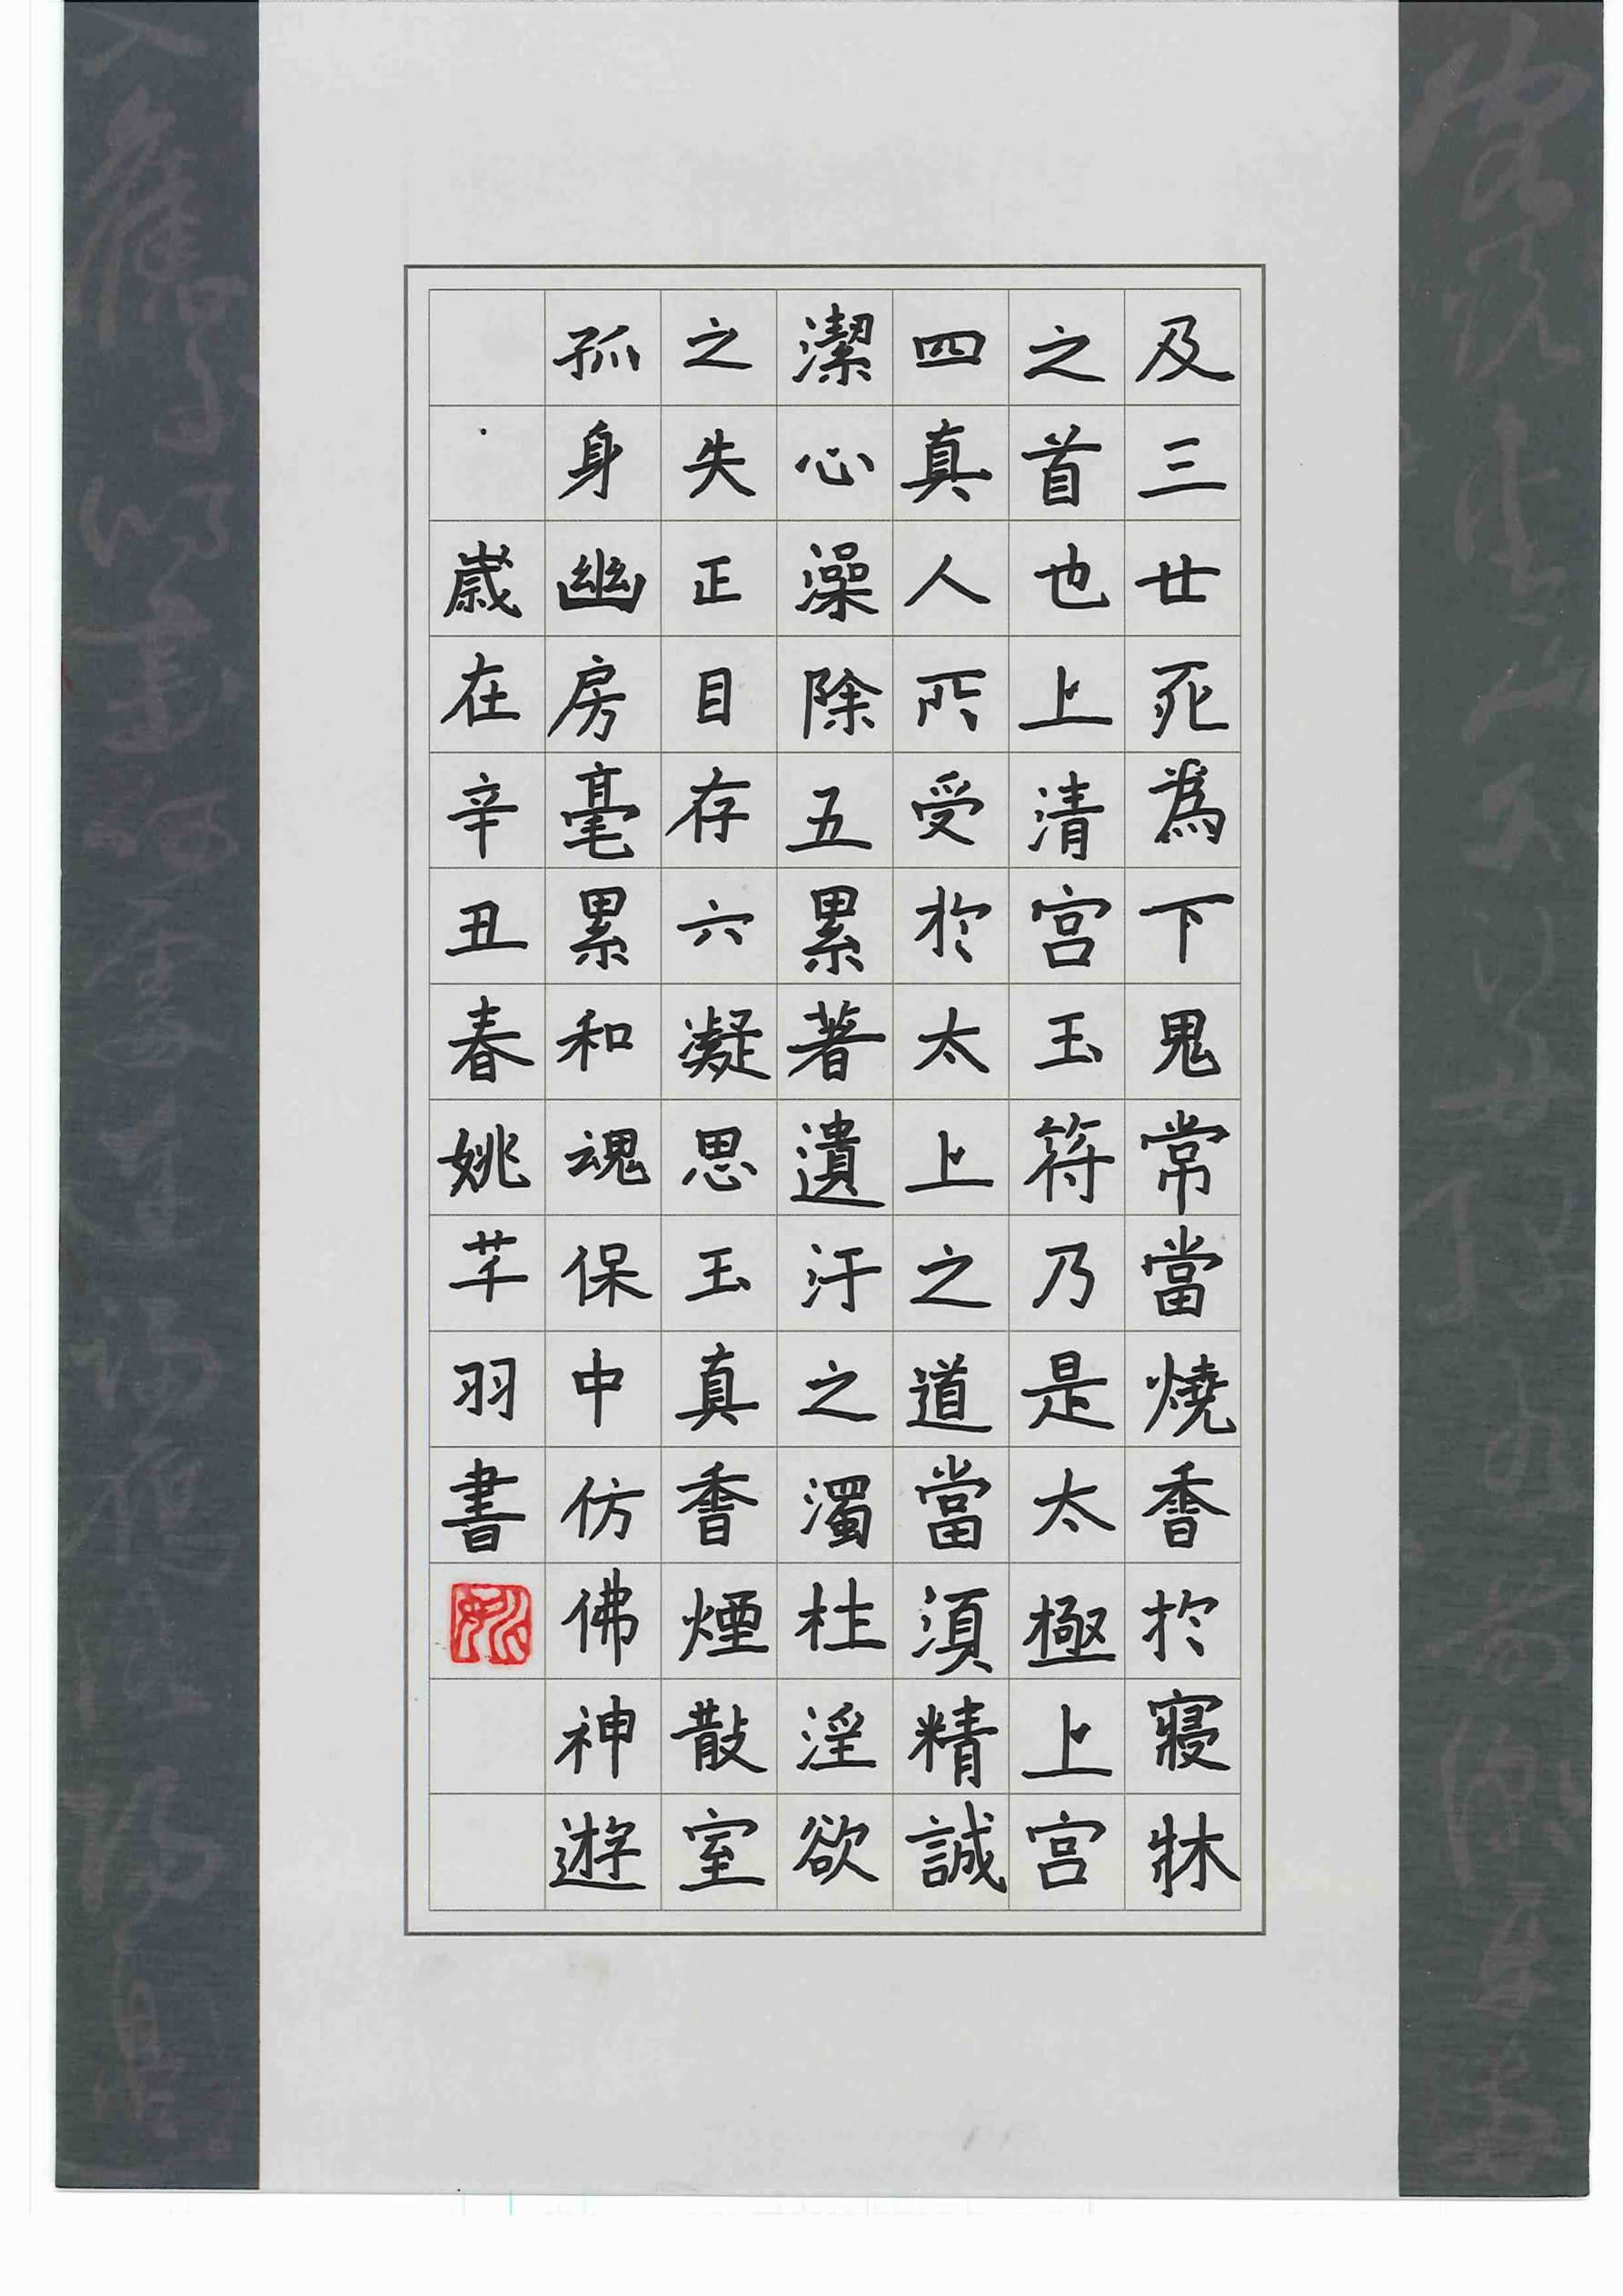 及三廿死為下鬼常當燒香於寢牀
之首也上清宮玉符乃是太極上宮
四真人所受於太上之道當須精誠
潔心澡除五累著遺汙之濁杜淫欲
之失正目存六凝思玉真香煙散室
孤身幽房毫累和魂保中仿佛神遊
歲在辛丑春姚芊羽書